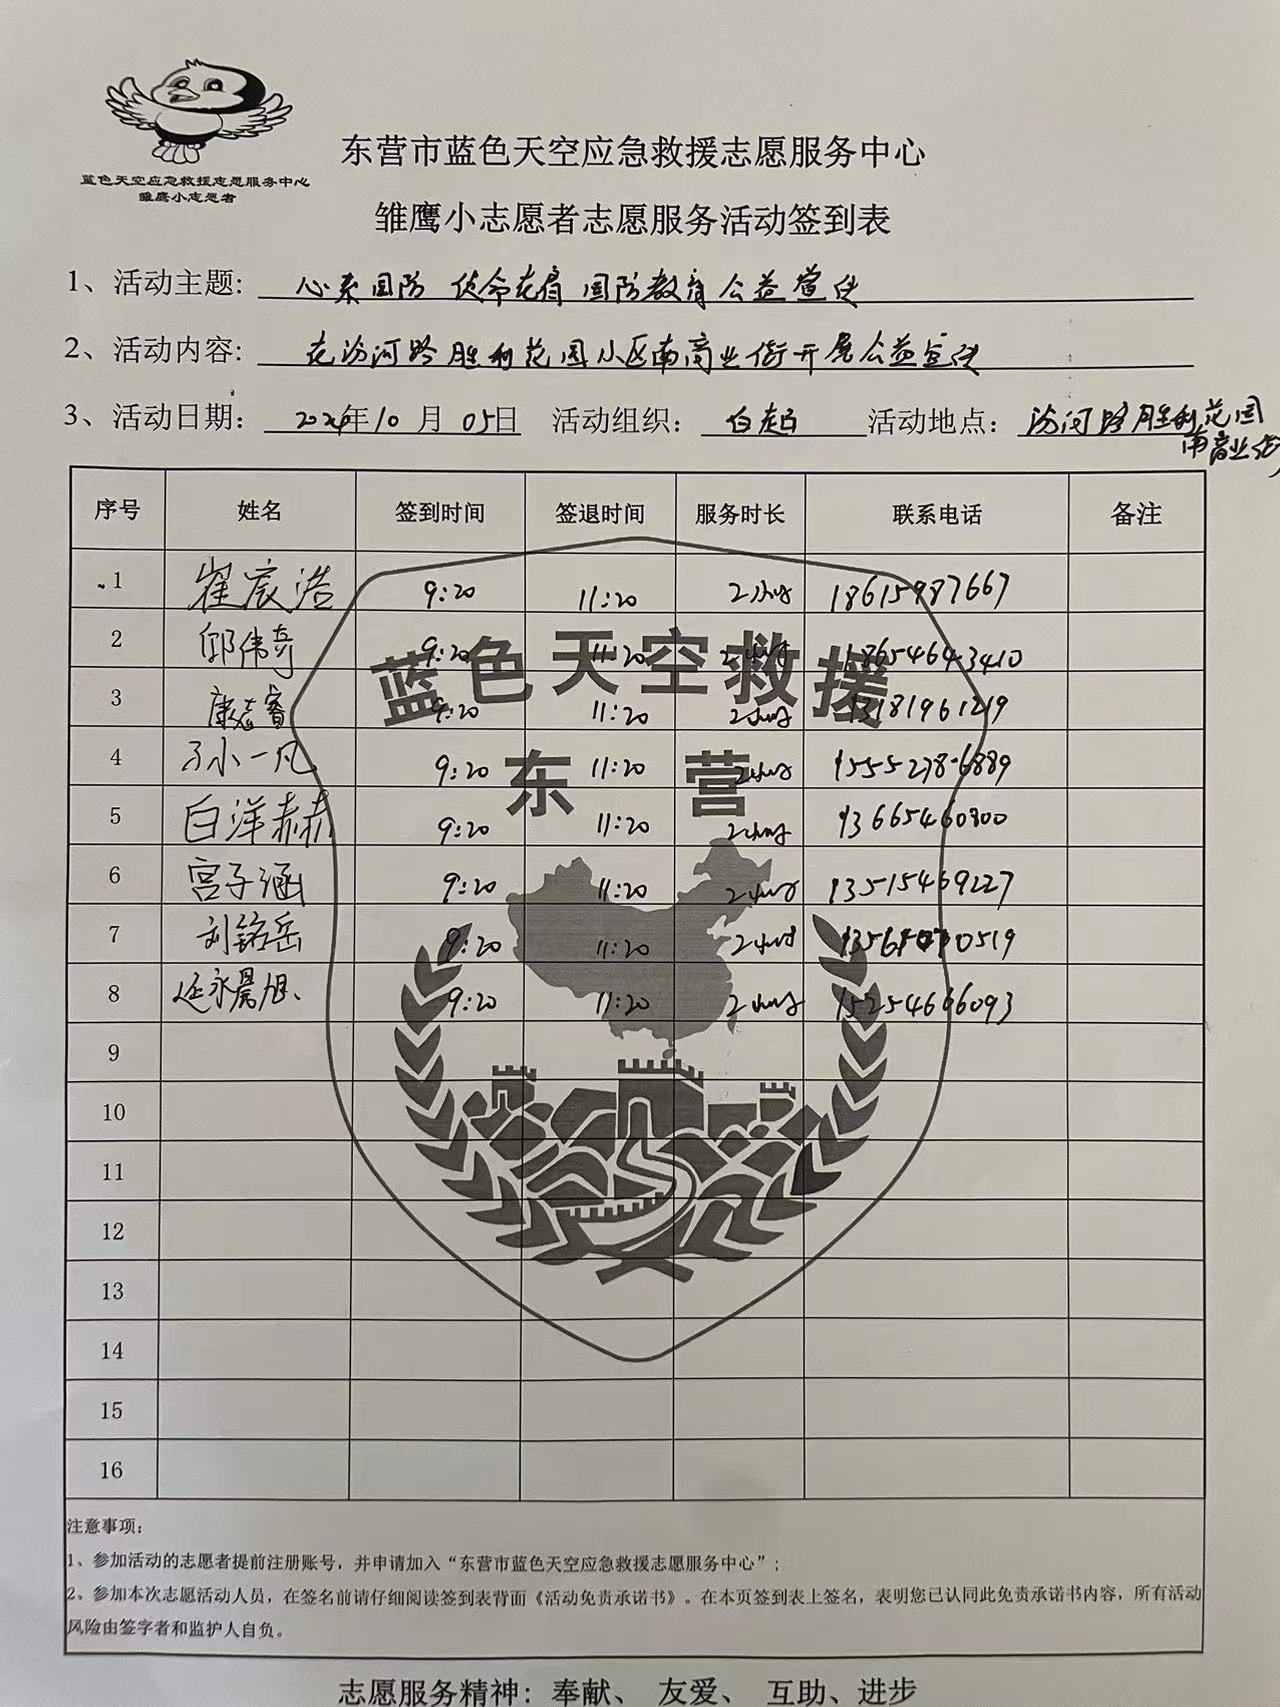 蓝色天空应急救援志愿服务中心
雏鹰小志愿者
东营市蓝色天空应急救援志愿服务中心
雏鹰小志愿者志愿服务活动签到表
1、活动主题: 心系国防 使命在肩 国防教育公益宣传
2、活动内容: 在汾河路胜利花园小区南商业街开展公益宣传
3、活动日期: 2024年10月05日 活动组织: 白起 活动地点: 汾河路胜利花园
南商业街
序号 姓名 签到时间 签退时间 服务时长 联系电话 备注
1 崔宸浩 9:20 11:20 2小时 18615987667
2 邱伟奇 9:20 11:20 2小时 18654643410
3 康志睿 9:20 11:20 2小时 13181961219
4 小一凡 9:20 11:20 2小时 15552786889
5 白洋赫 9:20 11:20 2小时 13665460800
6 宫子涵 9:20 11:20 2小时 13515469227
7 刘铭岳 9:20 11:20 2小时
8 任永晨旭 9:20 11:20 2小时 15254666093
9
10
11
12
13
14
15
16
蓝色天空救援
东营
注意事项:
1、参加活动的志愿者提前注册账号，并申请加入“东营市蓝色天空应急救援志愿服务中心”;
2、参加本次志愿活动人员，在签名前请仔细阅读签到表背面《活动免责承诺书》。在本页签到表上签名，表明您已认同此免责承诺书内容，所有活动
风险由签字者和监护人自负。
志愿服务精神: 奉献、 友爱、 互助、进步